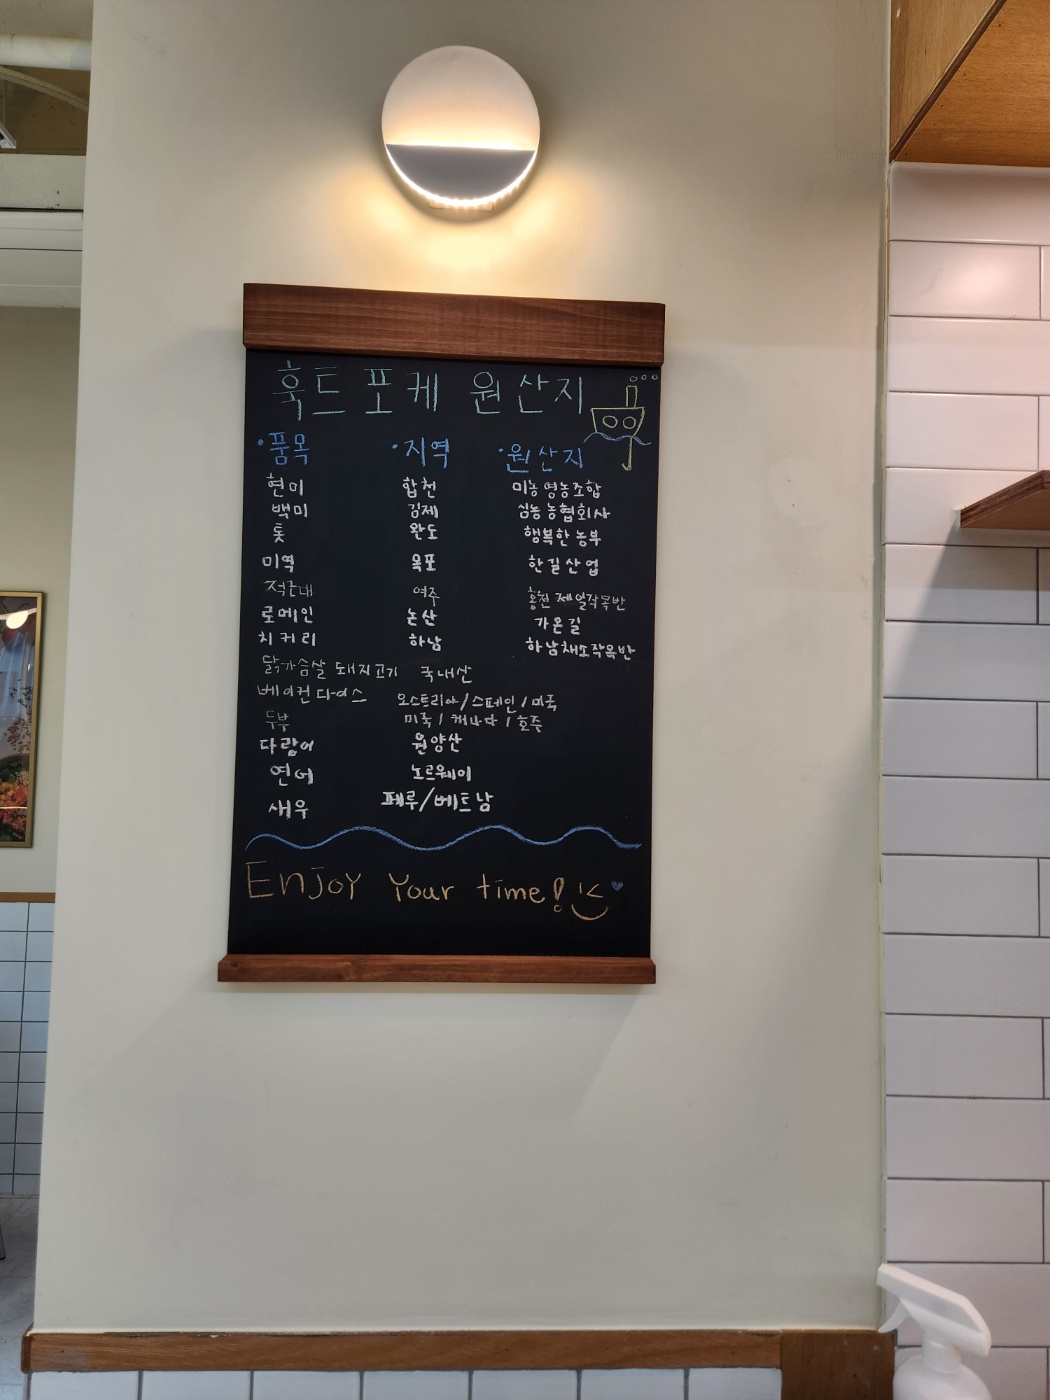 훅트 포케 원산지
·품목 ·지역 ·원산지
현미 합천 미농영농조합
백미 김제 심농 농협회사
톳 완도 행복한농부
미역 목포 한길산업
적근대 여주 홍천 제일작목반
로메인 논산 가온길
치커리 하남 하남채소작목반
닭가슴살 돼지고기 국내산
베이컨 다이스 오스트리아/스페인/미국
두부 미국/캐나다/호주
다랑어 원양산
연어 노르웨이
새우 페루/베트남
Enjoy Your time!